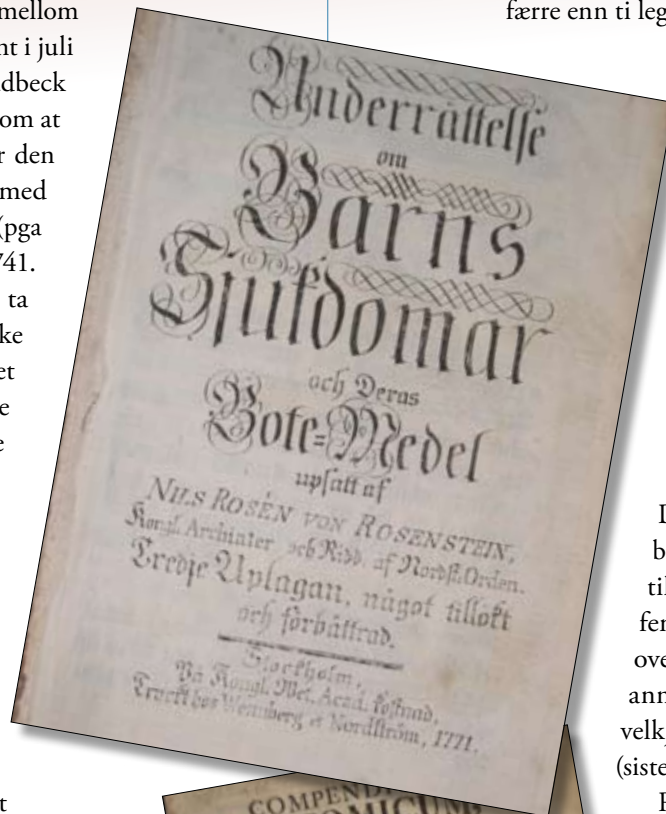 mellom
nt i juli
dbeck
om at
r den
med
(pga
741.
ta
ke
et
e
e
t
færre enn ti leg
Underrättelse
om
Barns
Sjukdomar
och Deras
Bote=Medel
upsatt af
NILS ROSÉN VON ROSENSTEIN,
Kongl. Archiater och Ridd. af Nordst. Orden.
Tredje Uplagan, något tillökt
och förbättrad.
Stockholm,
På Kongl. Wet. Acad. kostnad,
Tryckt hos Wennberg et Nordström, 1771.
COMPEND
OMICUM
D
b
til
fer
ove
ann
velk
(siste